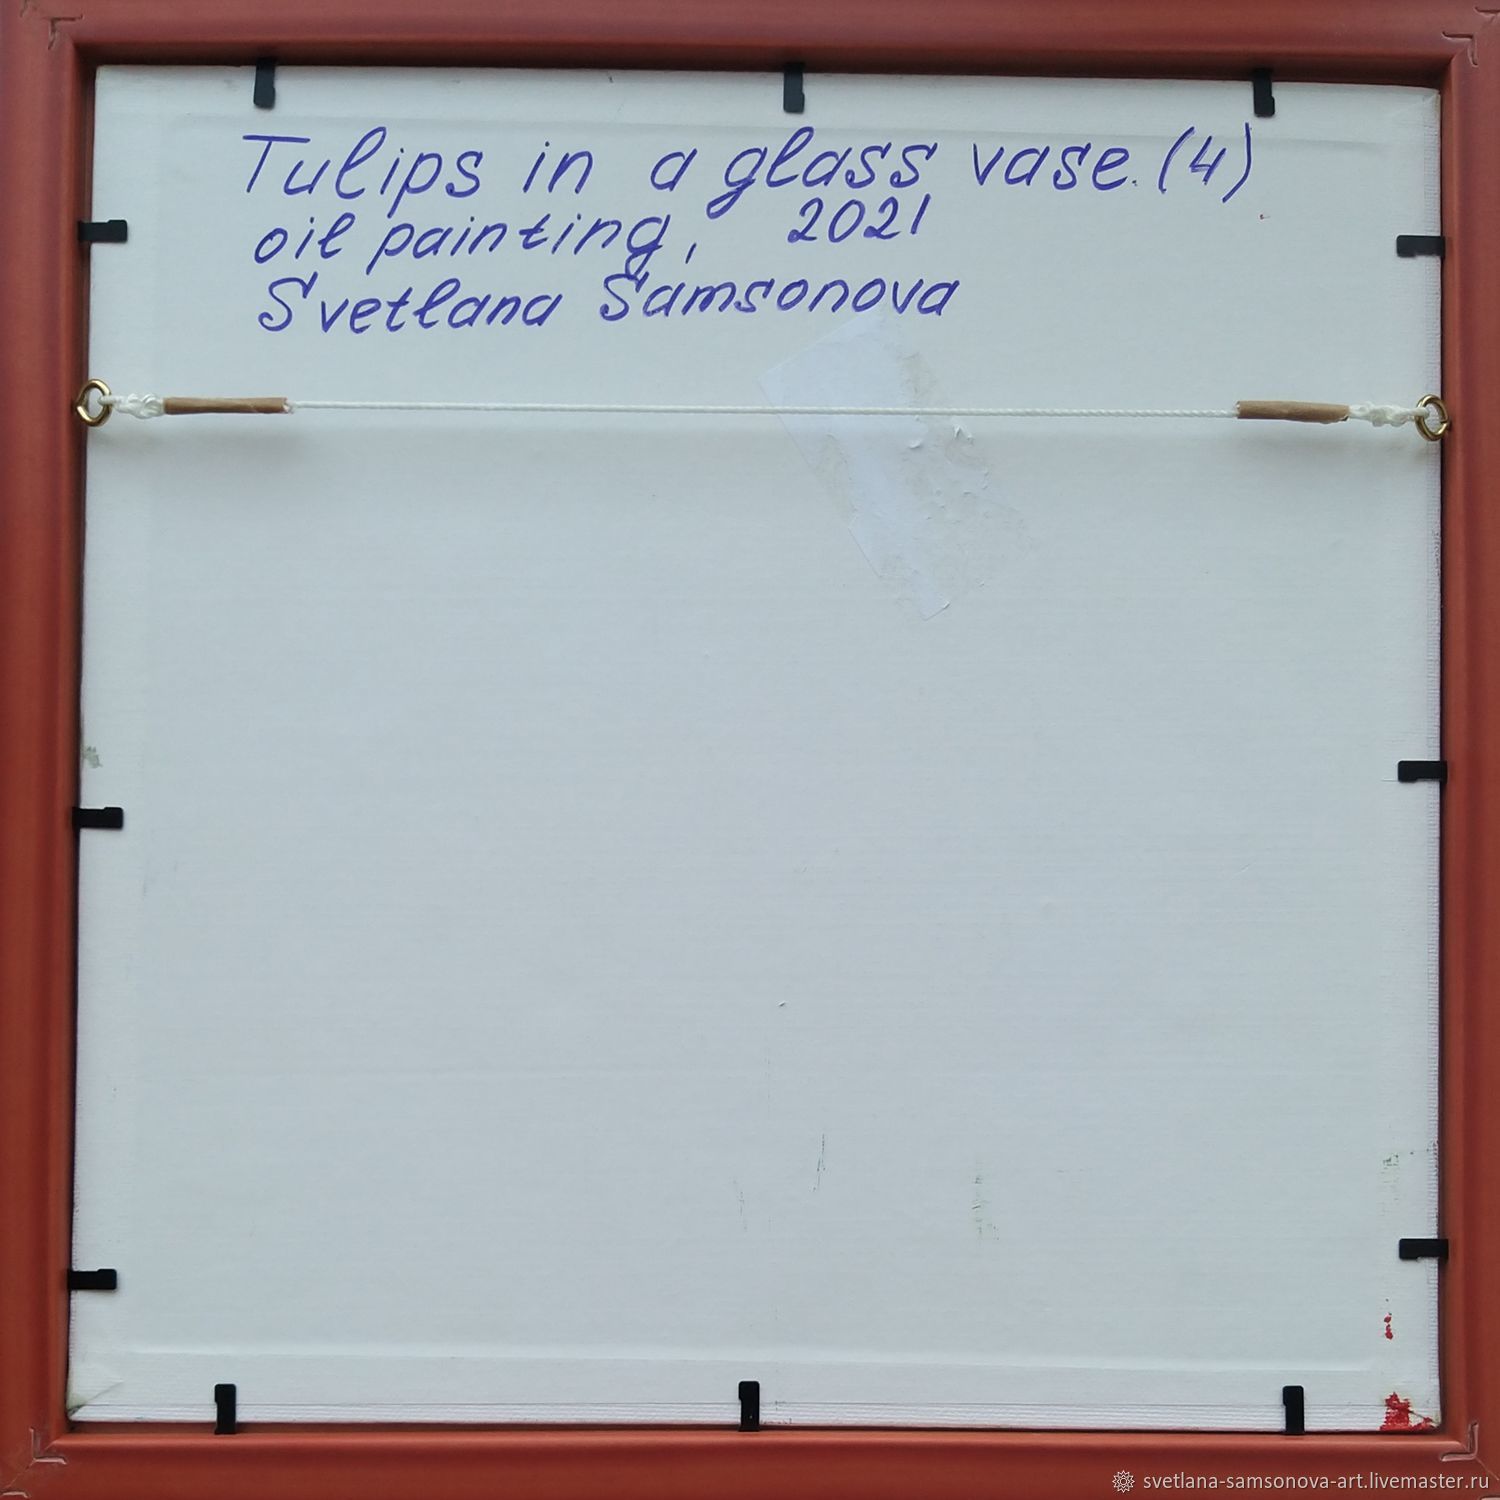 Tulips in a glass vase. (4)
oil painting, 2021
Svetlana Samsonova
svetlana-samsonova-art.livemaster.ru